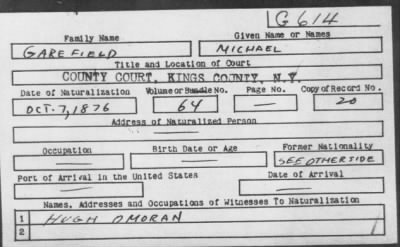 G614
Family Name Given Name or Names
GAREFIELD MICHAEL
Title and Location of Court
COUNTY COURT, KINGS COUNTY, N.Y.
Date of Naturalization Volume or Bundle No. Page No. Copy of Record No.
OCT. 7, 1876 64 — 20
Address of Naturalized Person
—
Occupation Birth Date or Age Former Nationality
— — SEE OTHER SIDE
Port of Arrival in the United States Date of Arrival
— —
Names, Addresses and Occupations of Witnesses To Naturalization
1 HUGH OMORAN
2